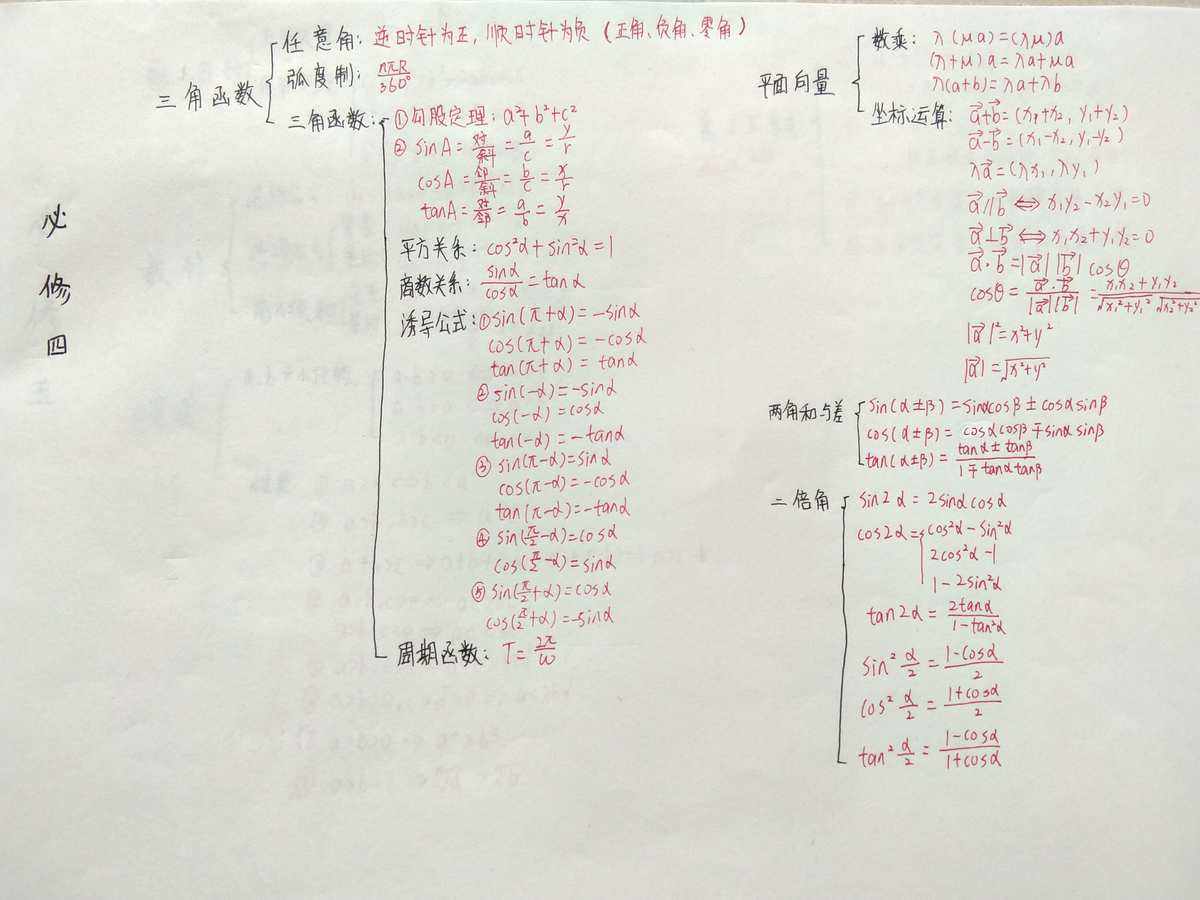 必修四
三角函数
任意角：逆时针为正，顺时针为负（正角、负角、零角）
弧度制：nπR/360°
三角函数：①勾股定理：a²+b²+c²
②sinA=对/斜=a/c=y/r
cosA=邻/斜=b/c=x/r
tanA=对/邻=a/b=y/x
平方关系：cos²α+sin²α=1
商数关系：sinα/cosα=tanα
诱导公式：①sin(π+α)=-sinα
cos(π+α)=-cosα
tan(π+α)=tanα
②sin(-α)=-sinα
cos(-α)=cosα
tan(-α)=-tanα
③sin(π-α)=sinα
cos(π-α)=-cosα
tan(π-α)=-tanα
④sin(π/2-α)=cosα
cos(π/2-α)=sinα
⑤sin(π/2+α)=cosα
cos(π/2+α)=-sinα
周期函数：T=2π/ω
平面向量
数乘：λ(μa)=(λμ)a
(λ+μ)a=λa+μa
λ(a+b)=λa+λb
坐标运算：a⃗+b⃗=(x₁+x₂,y₁+y₂)
a⃗-b⃗=(x₁-x₂,y₁-y₂)
λa⃗=(λx₁,λy₁)
a⃗∥b⃗⇔x₁y₂-x₂y₁=0
a⃗⊥b⃗⇔x₁x₂+y₁y₂=0
a⃗·b⃗=|a⃗||b⃗|cosθ
cosθ=a⃗·b⃗/|a⃗||b⃗|=x₁x₂+y₁y₂/√x₁²+y₁²√x₂²+y₂²
|a⃗|²=x²+y²
|a⃗|=√x²+y²
两角和与差
sin(α±β)=sinαcosβ±cosαsinβ
cos(α±β)=cosαcosβ∓sinαsinβ
tan(α±β)=tanα±tanβ/1∓tanαtanβ
二倍角
sin2α=2sinαcosα
cos2α=cos²α-sin²α
2cos²α-1
1-2sin²α
tan2α=2tanα/1-tan²α
sin²α/2=1-cosα/2
cos²α/2=1+cosα/2
tan²α/2=1-cosα/1+cosα